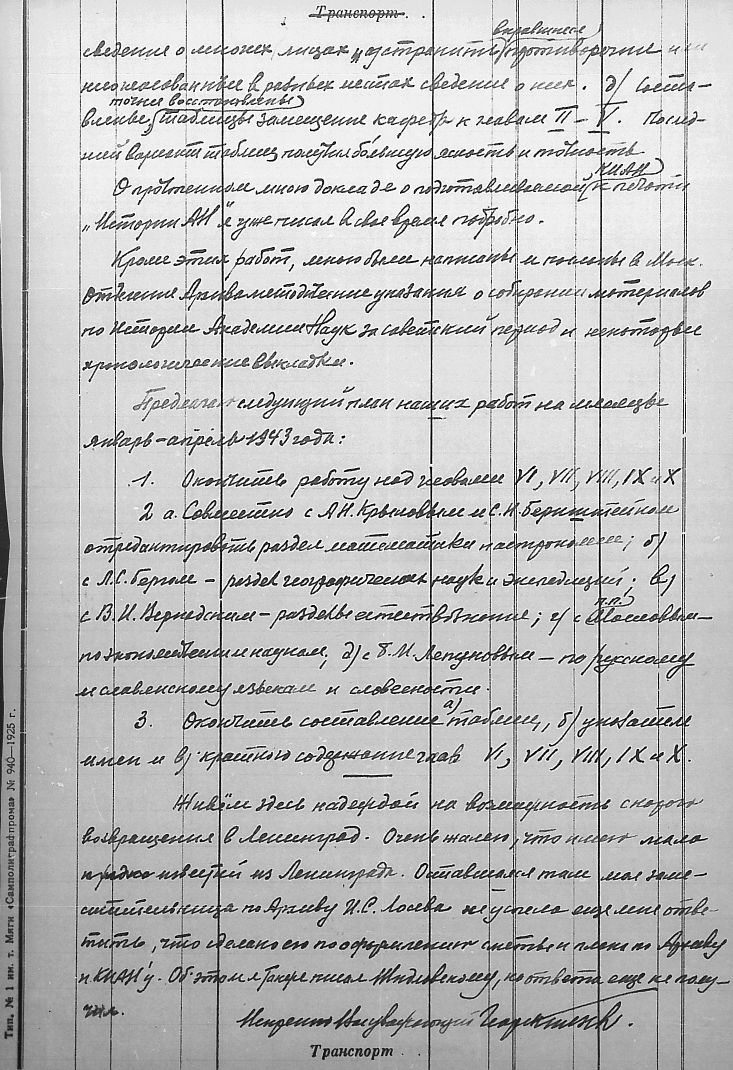 Транспорт . .
вкравшиеся
сведения о многих лицах и устранить противоречия или
несогласованные в разных местах сведения о них. д) Состав-
точнее восстановлены
влены таблицы замещение кафедр к главам II – V. Послед-
ний вариант таблиц получил большую ясность и точность
КИАН
О прочтенном мною докладе о подготавливаемой к печати
„Истории АН" я уже писал в свое время подробно.
Кроме этих работ, мною были написаны и посланы в Моск.
Отделение Архива методические указания о собирании материалов
по Истории Академии Наук за советский период и некоторые
хронологические выкладки.
Предлагаю следующий план наших работ на месяцы
январь – апрель 1943 года:
1. Окончить работу над главами VI, VII, VIII, IX и X
2 а. Совместно с А.Н. Крыловым и С.Н. Бернштейном
отредактировать раздел математики и астрономии; б)
с Л.С. Бергом – раздел географических наук и экспедиций; в)
с В.И. Вернадским – разделы естествознания; г) с
п.п.
Масловым –
по экономическим наукам; д) с Б.М. Ляпуновым – по русскому
и славянскому языкам и словесности.
3. Окончить составление а) таблиц, б) указателя
имен и в) краткого содержание глав VI, VII, VIII, IX и X.
Живём здесь надеждой на возможность скорого
возвращения в Ленинград. Очень жалею, что имею мало
известий из Ленинграда. Оставшаяся там моя заме-
стительница по Архиву И.С. Лосева не успела еще мне отве-
тить, что сделано ею по оформлению сметы и плана по Архиву
и КИАН'у. Об этом я также писал Жидловскому, но ответа еще не полу-
чил.
Искренно Вас уважающий
Транспорт . .
Тип. № 1 им. т. Мяги «Самполиграфпрома» № 940—1925 г.